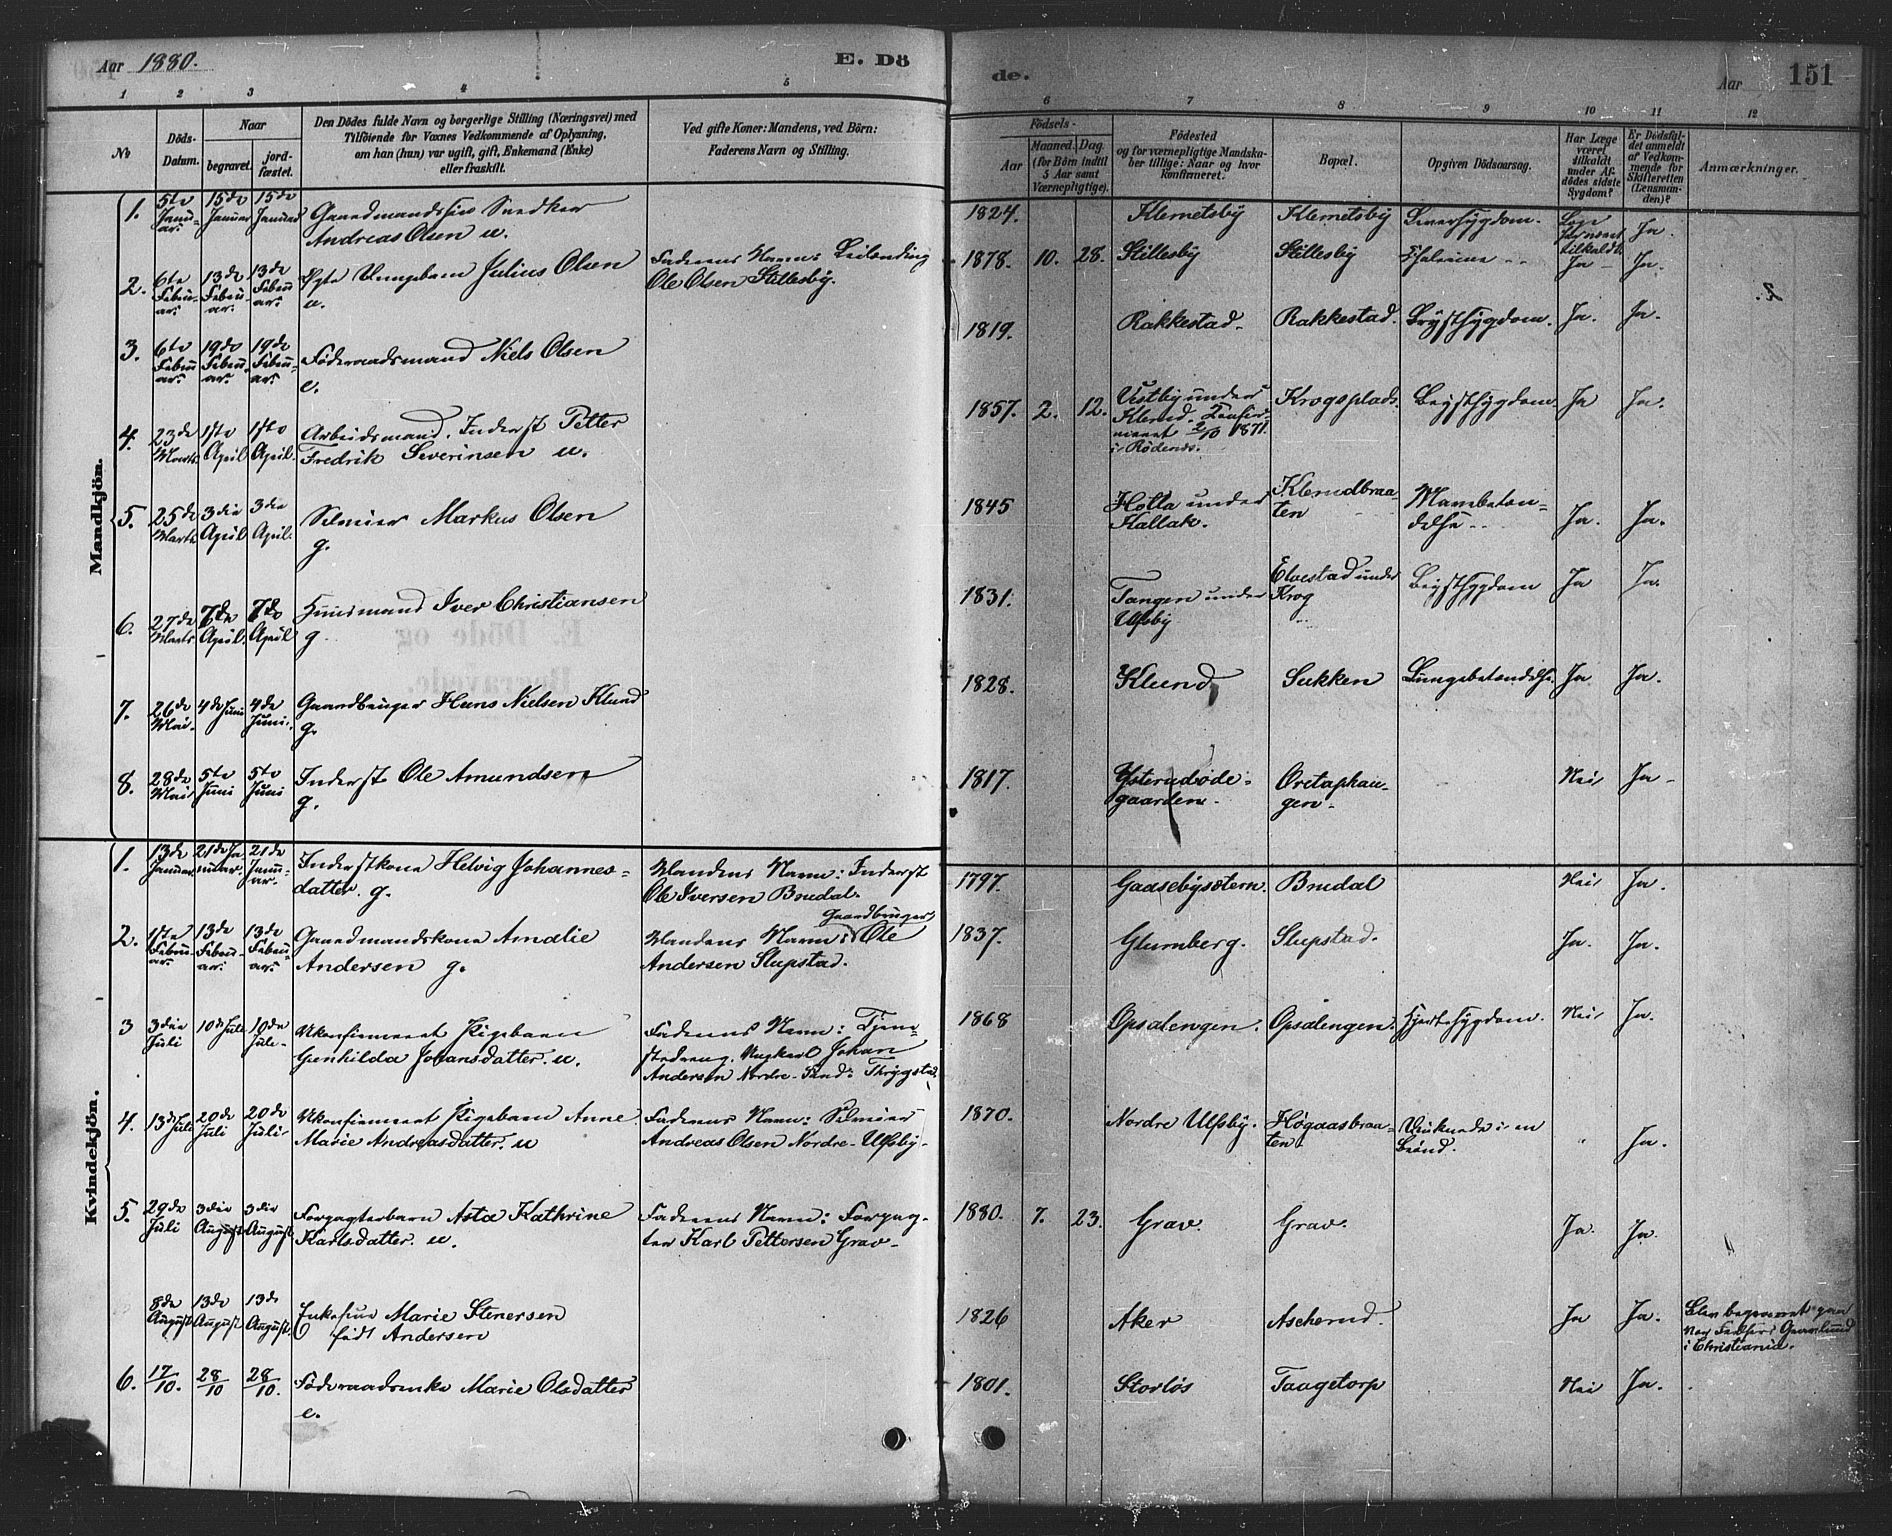 Aar 1880.
E. Dö
de.
Aar
151
1 2 3 4 5
6 7 8 9 10 11 12
No
Döds-
Datum.
Naar
begravet.
jord-
fæstet.
Den Dödes fulde Navn og borgerlige Stilling (Næringsvei) med
Tilföiende for Voxnes Vedkommende af Oplysning,
om han (hun) var ugift, gift, Enkemand (Enke)
eller fraskilt.
Ved gifte Koner: Mandens, ved Börn:
Faderens Navn og Stilling.
Födsels-
Aar
Maaned. Dag.
(for Börn indtil
5 Aar samt
Værnepligtige).
Födested
og for værnepligtige Mandska-
ber tillige: Naar og hvor
konfirmeret.
Bopæl.
Opgiven Dödsaarsag.
Har Læge
været
tilkaldt
under Af-
dödes sidste
Sygdom?
Er Dödsfal-
det anmeldt
af Vedkom-
mende for
Skifteretten
(Lensman-
den)?
Anmærkninger.
Mandkjön.
1. 5te Januar. 15de Januar 15de Januar Gaardmandssøn Snedker
Andreas Olsen u.
1824. Klemetsby Klemetsby Leversygdom. Læge tilkaldt. Ja.
2. 6te Februar. 13de Februar. 13de Februar. Ægte Drengebarn Julius Olsen
u.
Faderens Navn: Leilending
Ole Olsen Stillesby.
1878. 10. 28. Stillesby Stillesby Ja Ja.
3. 6te Februar. 19de Februar. 19de Februar. Föderaadsmand Niels Olsen
e.
1819. Rakkestad. Rakkestad. Brystsygdom. Ja. Ja.
4. 23de Marts. 1ste April 1ste April. Arbeidsmand. Inderst Petter
Fredrik Severinsen u.
1857. 2. 12. Vestby under
Klerud. Konfir-
meret 2/10 1871.
i Rödenes.
Krogsplads. Brystsygdom Ja Ja.
5. 25de Marts. 3die April 3die April. Selveier Markus Olsen
g.
1845 Holla under
Kallak.
Klerudbraa-
ten
Mavebeten-
delse
Ja. Ja.
6. 27de Marts 7de April. 7de April Huusmand Iver Christiansen
g.
1831. Tangen under
Ulfsby
Elvestad under
Krog
Brystsygdom Ja Ja.
7. 26de Mai. 4de Juni 4de Juni. Gaardbruger Hans Nielsen Klund
g.
1828. Klund Sukken Lungebetændelse. Ja Ja.
8. 28de Mai 5te Juni 5te Juni Inderst Ole Amundsen
g.
1817. Ysterudøde-
gaarden.
Oretaphau-
gen.
Nei Ja
Kvindekjön.
1. 13de Januar. 21de Januar. 21de Januar. Inderstkone Helvig Johannes-
datter. g.
Mandens Navn: Inderst
Ole Iversen Brudal.
1797. Gaasebysætern. Brudal Nei Ja.
2. 1ste Februar. 13de Februar. 13de Februar. Gaardmandskone Amalie
Andersen g.
Gaardbruger
Mandens Navn: Ole
Andersen Slupstad.
1837. Glumberg. Slupstad. Ja. Ja.
3 3die Juli 10de Juli 10de Juli. Ukonfirmeret Pigebarn
Gunhilda Johansdatter. u.
Faderens Navn: Tjene-
stedreng. Ungkarl Johan
Andersen Nordre-Sand: Thrygstad.
1868 Opsalengen. Opsalengen. Hjertesygdom. Nei Ja.
4. 13de Juli 20de Juli 20de Juli. Ukonfirmeret Pigebarn Anne
Marie Andreasdatter. u
Faderens Navn: Selveier
Andreas Olsen Nordre-Ulfsby.
1870. Nordre Ulfsby. Høgaasbraa-
ten
Druknede i en
Brønd.
" Ja.
5. 29de Juli 3die August 3die August. Forpagterbarn Asta Kathrine
Karlsdatter. u.
Faderens Navn: Forpag-
ter Karl Pettersen Grav.
1880. 7. 23. Grav. Grav. Ja. Ja.
8de August. 13de August 13de August. Enkefrue Marie Stenersen
født Andersen
1826 Aker Ascherud. Ja Ja. Blev begravet paa
Vor Frelsers Gravlund
i Christiania.
6. 17/10. 28/10 28/10. Föderaadsenke Marie Olsdatter
e.
1801. Storløs Taagetorp Nei Ja.